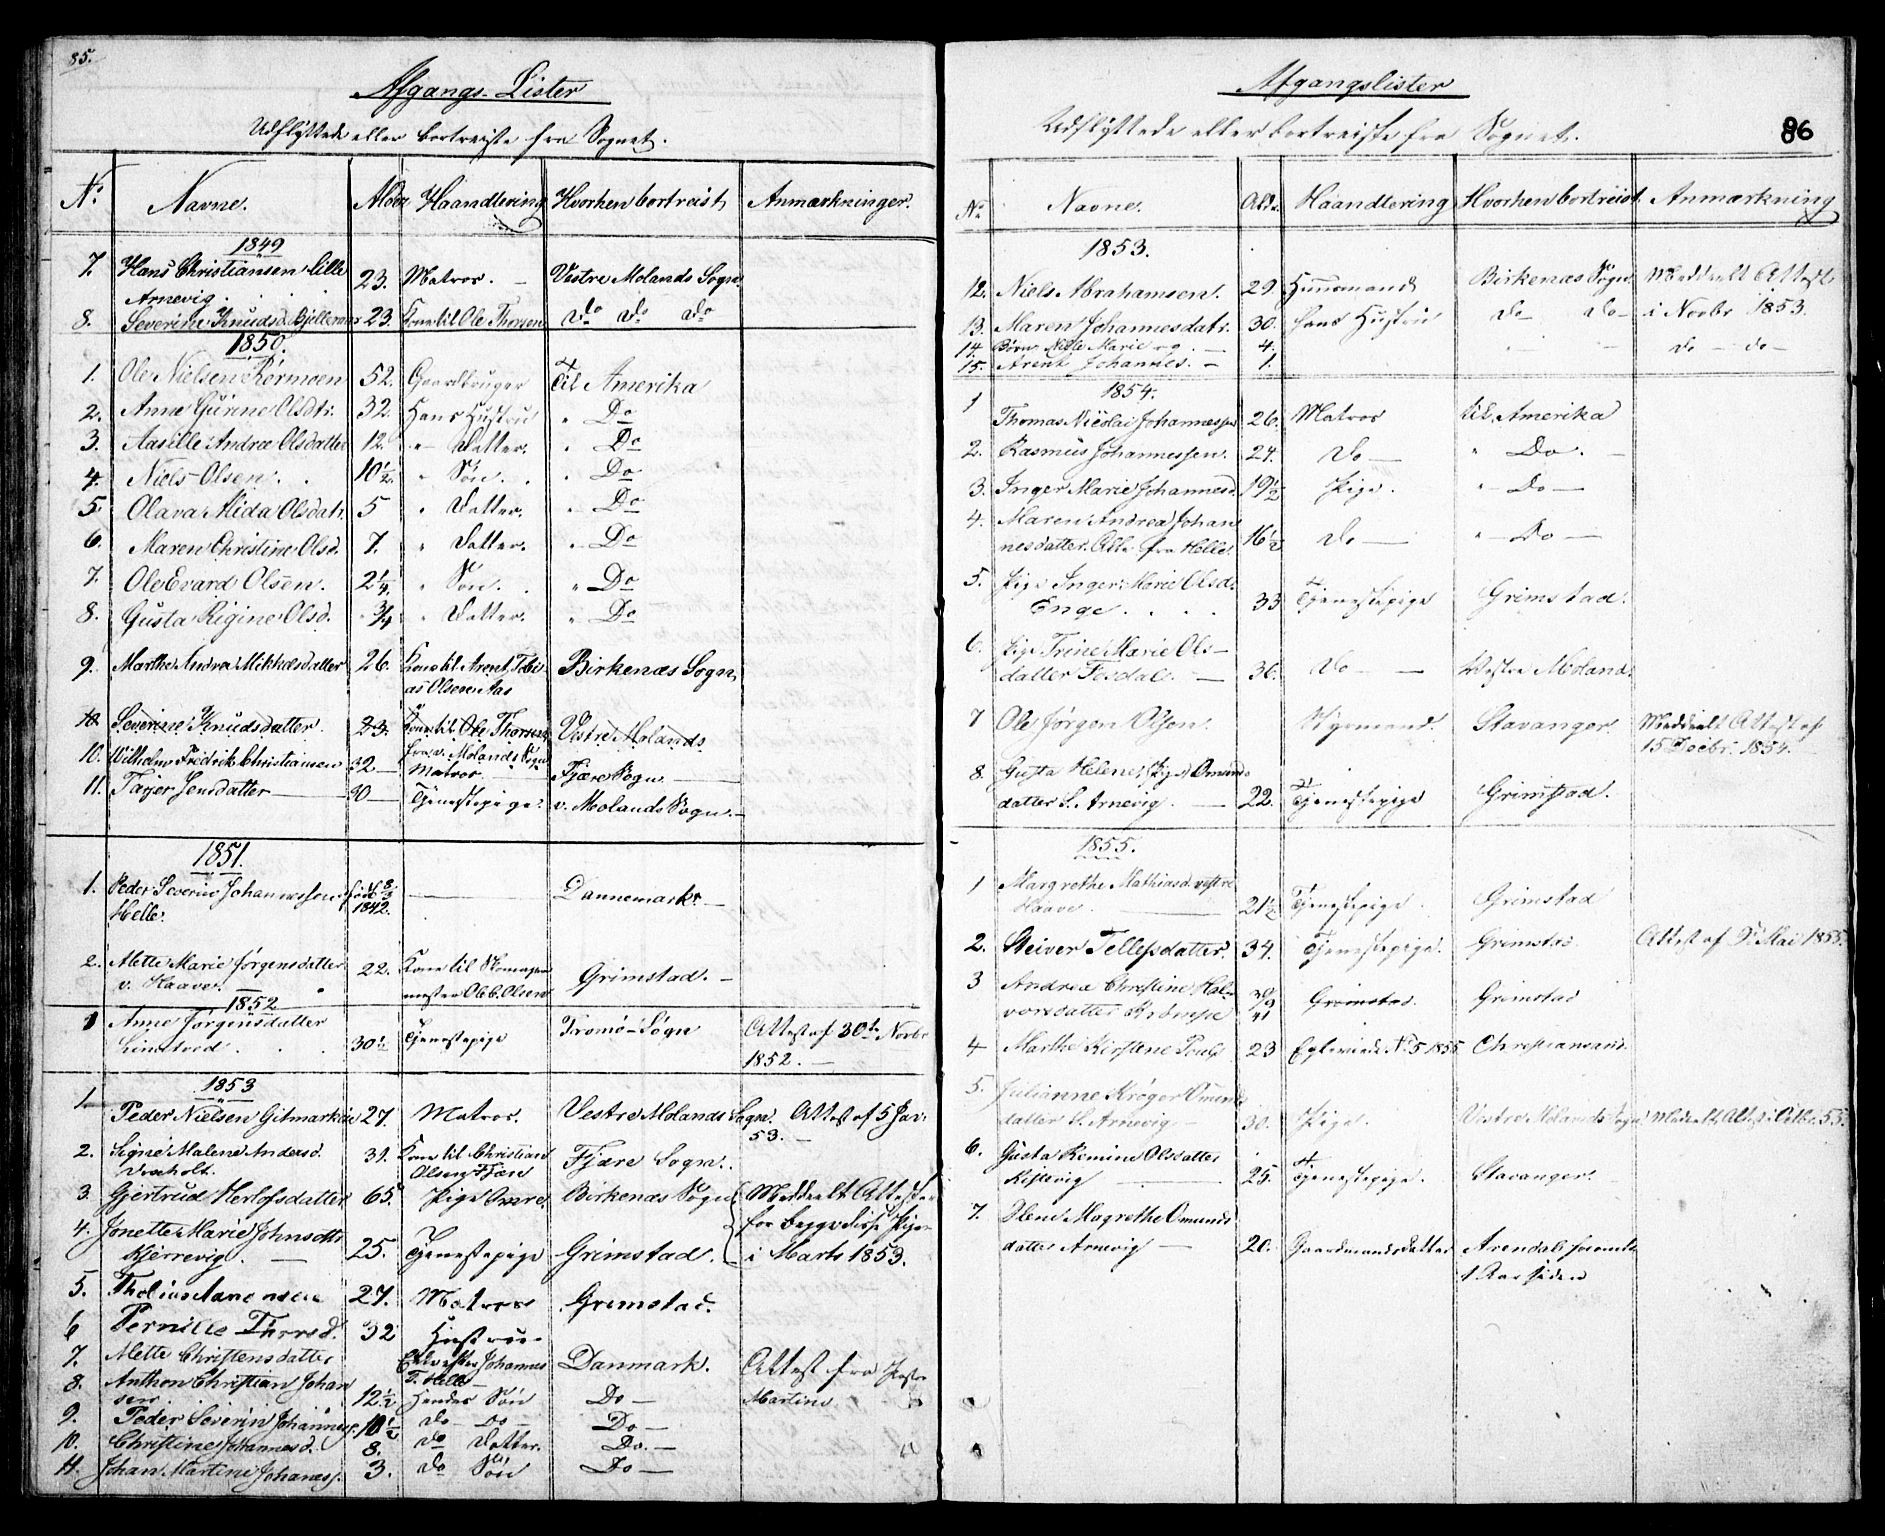 85.
Afgangs-Lister
Udflyttede eller bortreiste fra Sognet.
No Navne. Alder Haandtering Hvorhen bortreist Anmærkninger.
1849
7. Hans Christiansen lille 23. Matros. Vestre Molands Sogn.
Arnevig.
8. Severine Knudsd. 23. Kone til Ole Thorsen Do Do Do
1850.
1. Ole Nielsen Rørmoen 52. Gaardbruger Til Amerika
2. Anne Gurine Olsdtr. 32. Hans Hustru " Do
3. Aasille Andrea Olsdatter 12. " Datter. " Do
4. Niels Olsen. 10½. " Søn. " Do
5. Olava Alida Olsdatr. 5 " Datter. " Do
6. Maren Christine Olsd. 7. " Datter. " Do
7. Ole Evard Olsen. 2¼. " Søn. " Do
8. Gusta Rigine Olsd. ¾ " Datter. " Do
9. Marthe Andrea Mikkelsdatter 26. Kone til Arent Tobi- Birkenæs Sogn
as Olsen Aas
10. Severine Knudsdatter. 23. Kone til Ole Thorsen Vestre Molands
fra v. Molands Sogn
10. Wilhelm Fredrik Christiansen 32 Matros. Fjære Sogn
11. Tarjer Jensdatter 30 Tjenestepige. v. Molands Sogn.
1851.
1. Peder Severin Johannessen født Dannemark.
Helle. 1842.
2. Mette Marie Jørgensdatter 22. Kone til Skomager- Grimstad.
v. Haave. mester Ole C. Olsen
1852
1 Anne Jørgensdatter 30½ Tjenestepige Tromø-Sogn Attest af 30te Novbr
1852.
1853
1. Peder Nielsen Gitmarkeie 27. Matros. Vestre Molands Sogn. Attest af 5 Jan.
53.
2. Signe Malene Andersd. 31. Kone til Christian Fjære Sogn.
Olsen Fjære
3. Gjertrud Herlofsdatter 65. Pige Birkenæs Sogn Meddeelt Attester
for begge disse Piger
4. Jonette Marie Johnsdttr 25. Tjenestepige Grimstad. i Marts 1853.
Kjerrevig.
5. 27. Matros Grimstad.
6 Pernille 32 Hustru
7. Mette Christensdatter Johannes Danmark. Attest fra
T. Helle
8. Anthon Christian Johan- 12½ Hendes Søn Do Martins
sen
9. Peder Severin Johannes. 10½ do do Do
10. Christine Johannesd. 8. do Datter. Do.
11. Johan Martine Johaness. 3. do Søn Do
86
Afgangslister
Udflyttede eller bortreiste fra Sognet.
No Navne. Alder Haandtering Hvorhen bortreist. Anmærkning
1853.
12. Niels Abrahamsen. 29. Huusmand Birkenæs Sogn Meddeelt Attest
13. Maren Johannesdatr. 30. hans Hustru Do Do i Novbr 1853.
14. Børn Marie og 4. do do
15. Arent Johannes. 1.
1854.
1 Thomas Nicolai Johannessen 26. Matros til Amerika
2. Rasmus Johannessen. 24. Do " Do.
3. Inger Marie Johannesd. 19½ Pige. " Do
4. Maren Andrea Johan-
nesdatter. Alle fra Helle. 16½ Do " Do
5. Pige Inger Marie Olsd.
Enge. 33 Tjenestepige Grimstad.
6. Pige Trine Marie Ols-
datter Fosdal. 36. Do Vestre Moland.
7 Ole Jørgen Olsen Stavanger. Meddeelt Attest af
15 Decbr. 1854.
8. Gusta Helene (Pige) Omunds-
datter L. Arnevig. 22. Tjenestepige Grimstad.
1855.
1 Margrethe Mathiasd. vestre
Haave. 21½ Tjenestepige. Grimstad
2. Steiver Tellefsdatter 34. Tjenestepige. Grimstad. Attest af 9 Mai 1855.
3 Andrea Christine Hal-
vorsdatter Grimstad. Grimstad
4 Marthe Kirstene 23 No 5 1855 Christiansand.
5. Julianne Krøger Omunds-
datter L. Arnevig 30. Pige. Vestre Molands Sogn Meddelt Attest i Octbr. 55.
6. Gusta Romine Olsdatter
Kistevig 25. Tjenestepige. Stavanger.
7. Margrethe Omunds-
datter Arnevig 20. Gaardmandsdatter Arendal
1 Aar siden